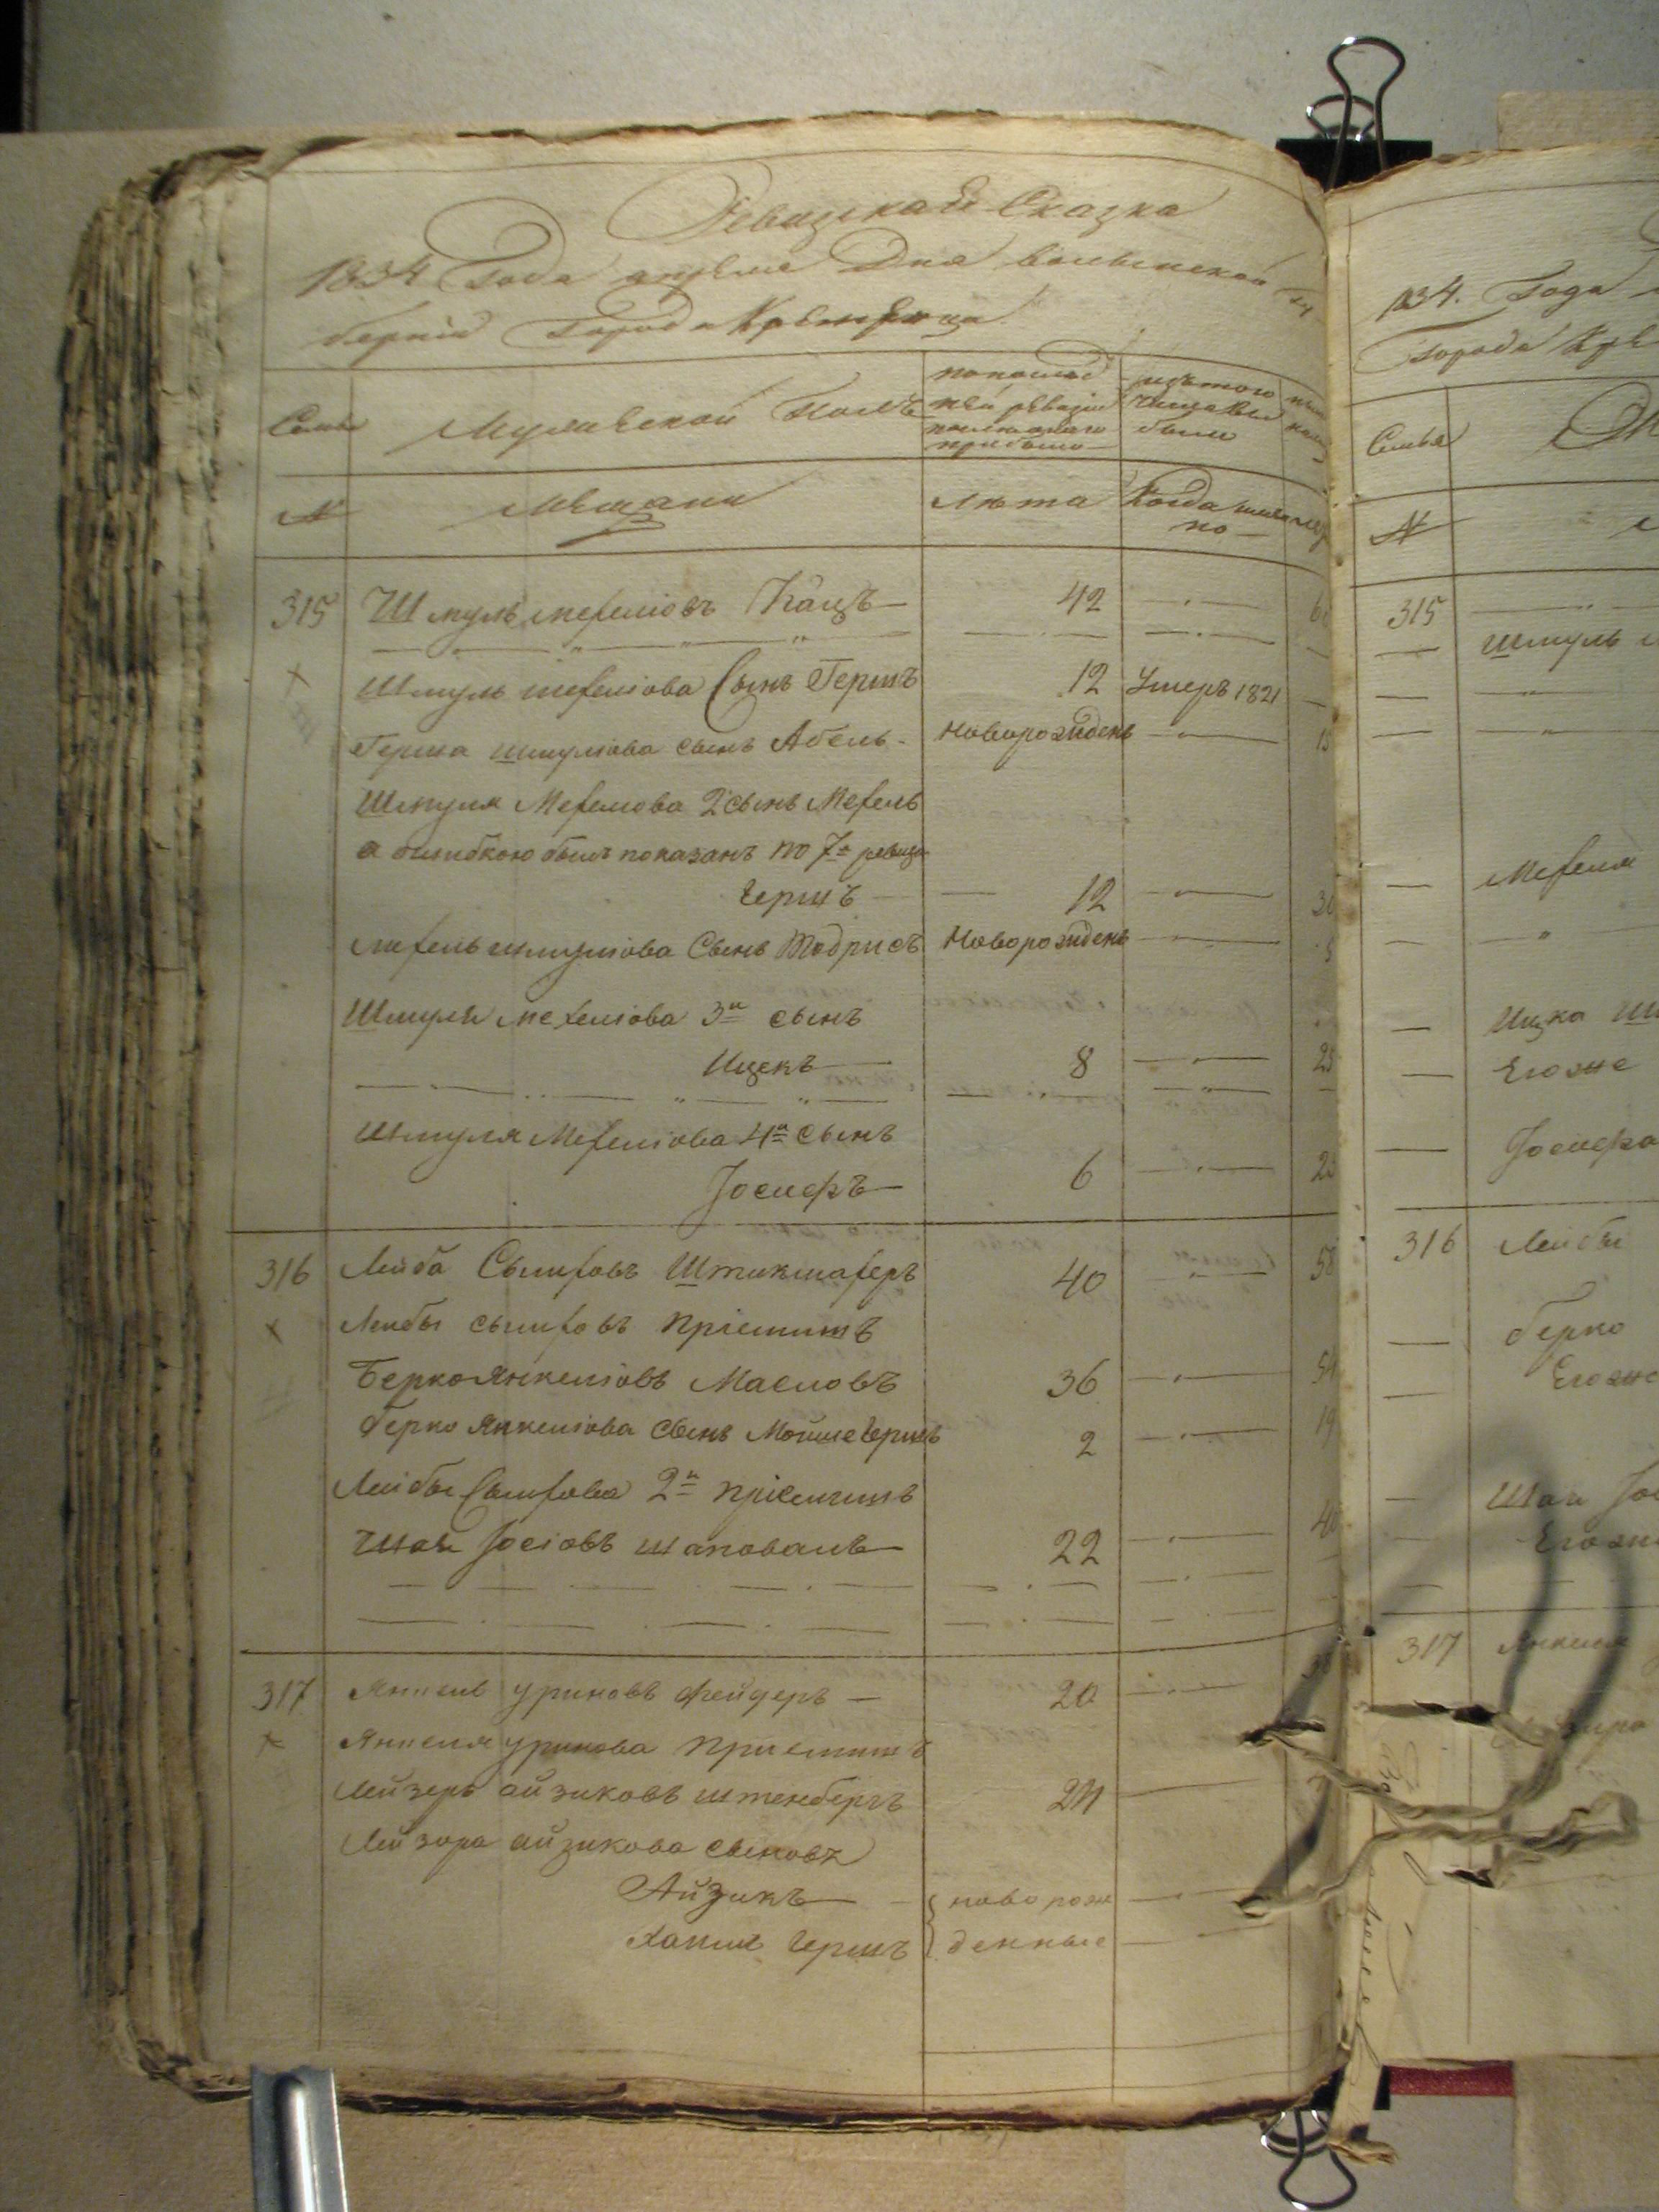 Ревизская Сказка
1834 Года апреля Дня волынской гу
берніи Города Кременца
Семьи
Мужеской Полъ
попослед
ней ревизіи
состояло и
после того
прибыло
изътого
числа вы
было
№
Мещани
Лѣта
Когда имян
но
315 Шмуль мехелiовъ Кацъ 42
Шмуль мехелiова Сынъ Гершъ 12 Умеръ 1821
Герша шмулiова сынъ Абель Новорожденъ
Шмуля Мехелiова 2 сынъ Мехель
а ошибкою былъ показанъ по 7й ревизи
Гершъ 12
мехель шмулiова Сынъ Тодрисъ Новорожденъ
Шмуля мехелiова 3й сынъ
Ицекъ 8
Шмуля Мехелiова 4й сынъ
Іосифъ 6
316 Лейба Сымховъ 40
Лейбы сымховъ Пріемышъ
Берко Янкелiовъ Масловъ 36
берко Янкелiова сынъ Мойше Гершъ 2
Лейбы Сымхова 2й пріемышъ
Шая Іосіовъ шаповалъ 22
317 Янкель уриновъ фейдеръ 20
Янкеля уринова Приемышъ
Лейзеръ айзиковъ штенбергъ 24
Лейзора айзикова сыновя
Айзикъ новорож
Хаим Гершъ денные
1834. Года
Города Кре
Семья
№
315
Шмуль
Мехеля
Ицка Шм
Егоже
Іосифа
316 Лейбы
берко
Егоже
Шаи Іос
Егоже
317 Янкеля